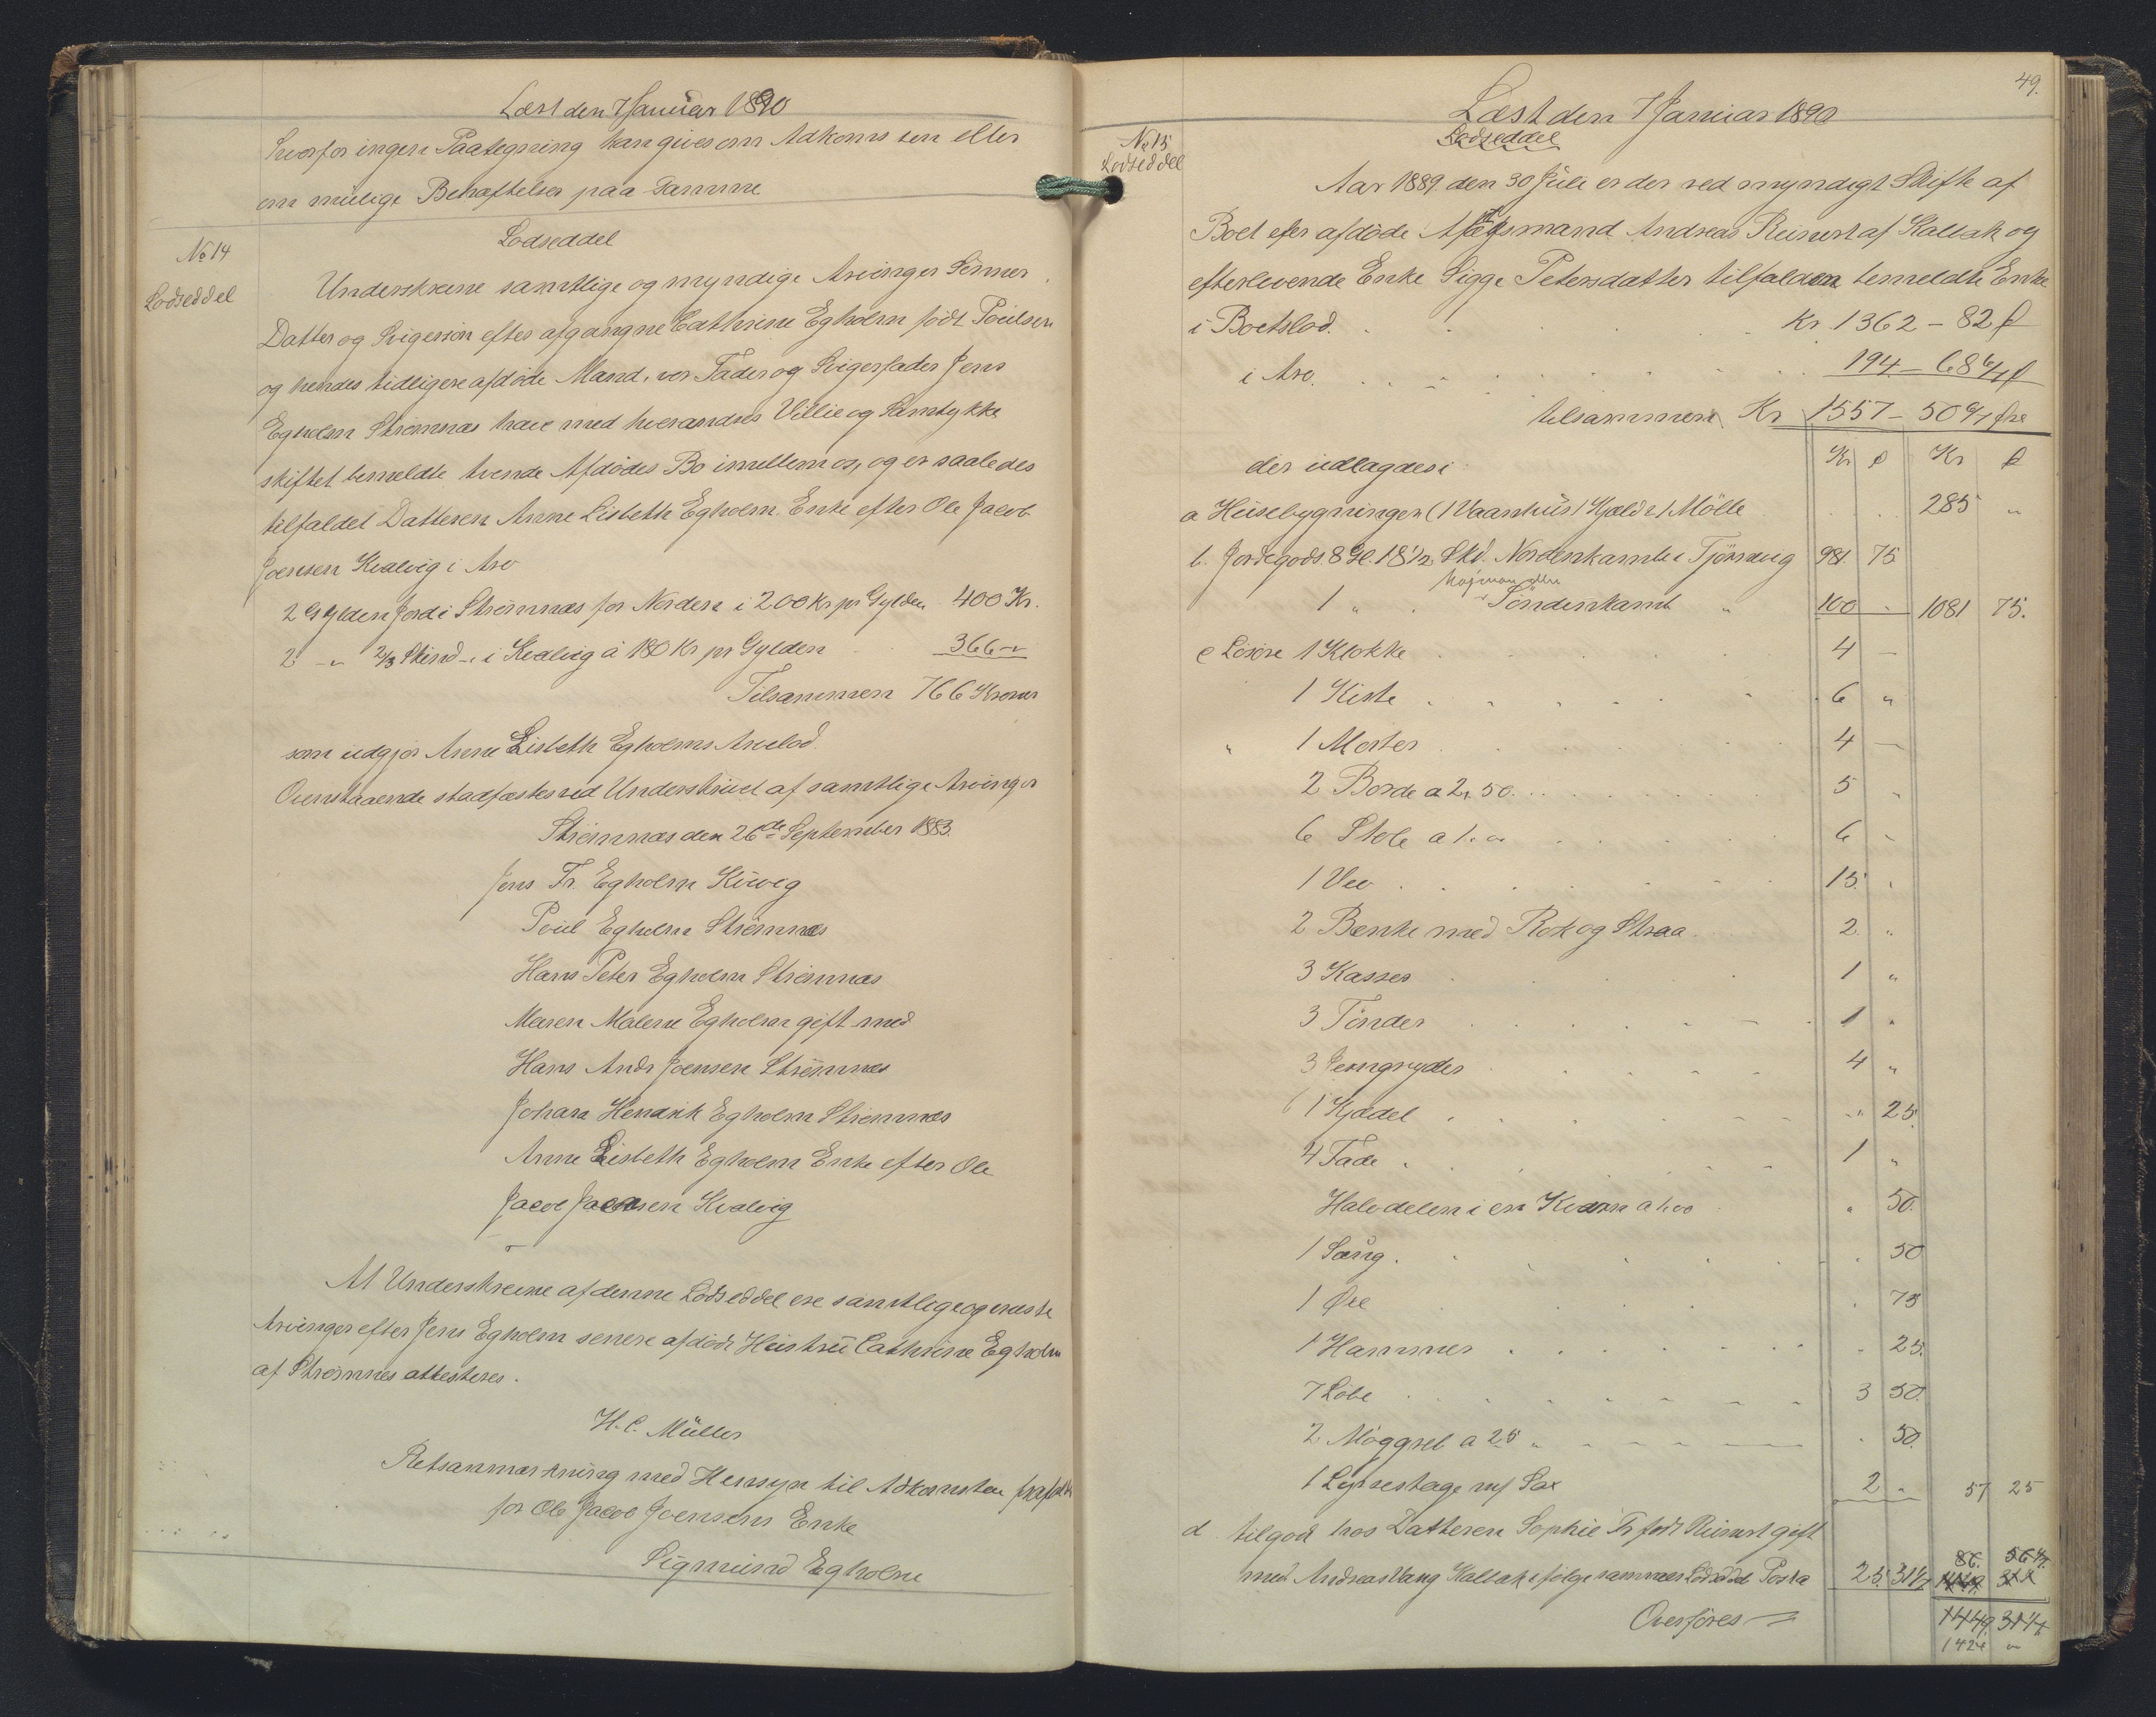 Læst den 7 Januar 1890
hvorfor ingen Paategning kan gives om Adkomsten eller
om mulige Behæftelser paa Samme
No 14
Lodseddel
Lodseddel
Underskrevne samtlige og myndige Arvinger Sönner
Datter og Svigersön efter afgangne Cathrine Egholm födt Poulsen
og hendes tidligere afdøde Mand, vor Fader og Svigerfader Jens
Egholm Strömnæs have med hverandres Villie og Samtykke
skiftet bemeldte tvende Afdødes Bo imellem os, og er saaledes
tilfaldet Datteren Anne Lisbeth Egholm Enke efter Ole Jacob
Joensen Kvalvig i Arv
2 Gylden Jord i Strömnæs for Norden i 200 Kr pr Gylden 400 Kr.
2 - " 2/3 Skind - i Kvalvig á 180 Kr pr Gylden 366 - "
Tilsammen 766 Kroner
som udgjør Anne Lisbeth Egholms Arvelod.
Ovenstaaende stadfæstes ved Underskrivt af samtlige Arvinger
Strömnæs den 26de September 1883.
Jens Fr. Egholm
Poul Egholm Strömnæs
Hans Peter Egholm Strömnæs
Maren Malene Egholm gift med
Hans Andr Joensen Strömnæs
Johan Hendrik Egholm Strömnæs
Anne Lisbeth Egholm Enke efter Ole
Jacob Joensen Kvalvig
At Underskrevne af denne Lodseddel ere samtlige og eneste
Arvinger efter Jens Egholm senere afdøde Hustru Cathrine Egholm
af Strömnes attesteres.
H. C. Müller
Retsanmærkning med Hensyn til Adkomsten frafaldt
for Ole Jacob Joensens Enke
Sigmund Egholm
49.
Læst den 7 Januar 1890
No 15
Lodseddel
Lodseddel
Aar 1889 den 30 Juli er der ved myndigt Skifte af
Boet efter afdøde Aftægtsmand Andreas Reinert af Kalbak og
efterlevende Enke Sigge Petersdatter tilfalden bemeldte Enke
i Boetslod. Kr. 1362 - 82 ø
i Arv. 194 - 68 6/7 ø
tilsammen Kr 1557 - 50 6/7 øre
der udlagdes i Kr ø Kr ø
a Husebygninger (1 Vaanhus 1 Hjeld 1 Mölle 285 "
b. Jordegods. 8 Gl. 18 1/2 Skd. Nordenkambe i Tjörnevig 981. 75
1 " Söndenkamb " 100 - 1081 75.
c Lösöre 1 Klokke 4 -
1 Kiste 6 "
" 1 Morter 4 -
2 Borde a 2,50 5 "
6 Stole a 1.00 6 -
1 Væv 15 "
2 Bænke med Rok og Straa 2. "
3 Kasser 1 "
3 Tönder 1 "
3 Jerngryder 4 "
1 Kjedel " 25.
4 Fade 1 "
Halvdelen i en Kværn a 1.00 " 50.
1 Sæng . 50
1 Øre . 75
1 Hammer - 25.
7 Löbe 3 50.
2 Möggreb a 25 " . 50.
1 Lysestage m/ Sax 2 - 57 25
d tilgod hos Datteren Sophie Fr. født Reinert gift
86. 56 4/7.
med Andreas Vang Kalbak ifølge sammes Lodseddel Post a 25 31 4/7
Overföres 1449. 31 4/7
1424 "